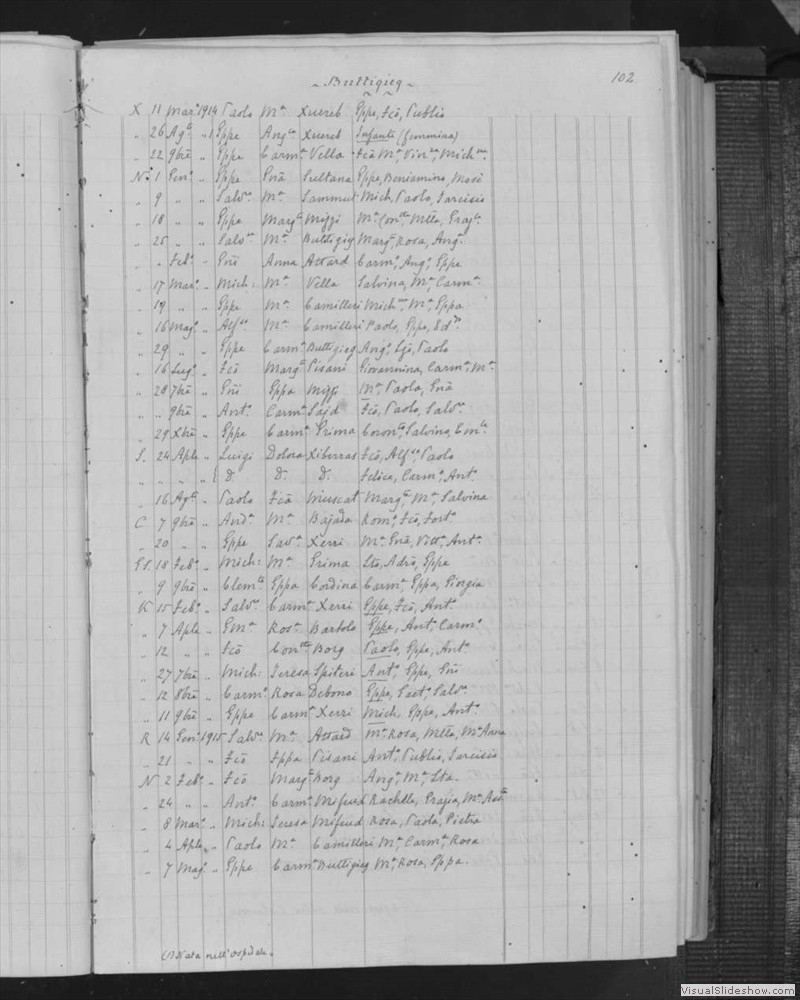 ~ Buttigieg ~
102
X 11 Mar. 1914 Paolo Mª Xuereb Gppe, Fcõ, Publio
" 26 Agto " Gppe Angla Xuereb Infante (femmina)
" 22 9bre " Gppe Carmª Vella Fcã Mª, Vinza, Michna
N. 1 Genº " Gppe Gnã Sultana Gppe, Beniamino, Mosè
" 9 " " Salvre Mª Sammut Mich, Paolo, Tarcisio
" 18 " " Gppe Margta Mizzi Mª Contta
" 25 " " Salvre Mª Buttigieg Margta, Rosa, Angª
" " Febº " Gnĩ Anna Attard Carmº, Angº, Gppe
" 17 Marº " Mich: Mª Vella Salvina, Mª, Carmª
" 19 " " Gppe Mª Camilleri Michna, Mª, Gppa
" 16 Magº " Alfso Mª Camilleri Paolo, Gppe
" 29 " " Gppe Carmª Buttigieg Angº, Paolo
" 16 Lugº " Fcõ Margta Pisani Giovannina, Carmª, Mª
" 28 7bre " Gnĩ Gppa Mizzi Mª, Paola, Gnã
" " 9bre " Antº Carmª Sajd Fcõ, Paolo, Salvre
" 29 Xbre " Gppe Carmª Grima Coronta, Salvina
S. 24 Aple " Luigi Dolora Xiberras Fcõ, Alfso, Paolo
" " " " { D. D. D. Felice, Carmº, Antº
" 16 Agto " Paolo Fcã Muscat Margta, Mª Salvina
C 7 9bre " Andª Mª Bajada Romº, Fcõ, Fortº
" 20 " " Gppe Salvª Xerri Mª Gnã, Vittª, Antª
18 Febº " Mich: Mª Grima Gppe
" 9 9bre " Clemte Gppa Cordina Carmª, Gppa, Giorgia
K 15 Febº " Salvre Carmª Xerri Gppe, Fcõ, Antº
" 7 Aple " Emª Rosª Bartolo Gppe, Antº, Carmº
" 12 " " Fcõ Contta Borg Paolo, Gppe, Antº
" 27 7bre " Mich: Teresa Spiteri Antº, Gppe, Gnĩ
" 12 8bre " Carmº Rosa Debono Gppe, Gaetº, Salvre
" 11 9bre " Gppe Carmª Xerri Mich, Gppe, Antº
R 14 Genº 1915 Salvre Mª Attard Mª, Rosa, Mª Anna
" 21 " " Fcõ Gppa Pisani Antº, Publio, Tarcisio
N 2 Febº " Fcõ Margta Borg Angª, Mª
" 24 " " Antº Carmª Mifsud Rachele, Grazia
" 8 Marº " Mich: Teresa Mifsud Rosa, Paola, Pietra
" 4 Aple " Paolo Mª Camilleri Mª, Carmª, Rosa
" 7 Magº " Gppe Carmª Buttigieg Mª, Rosa, Gppa.
(1) Nata nell' ospedale.
VisualSlideshow.com